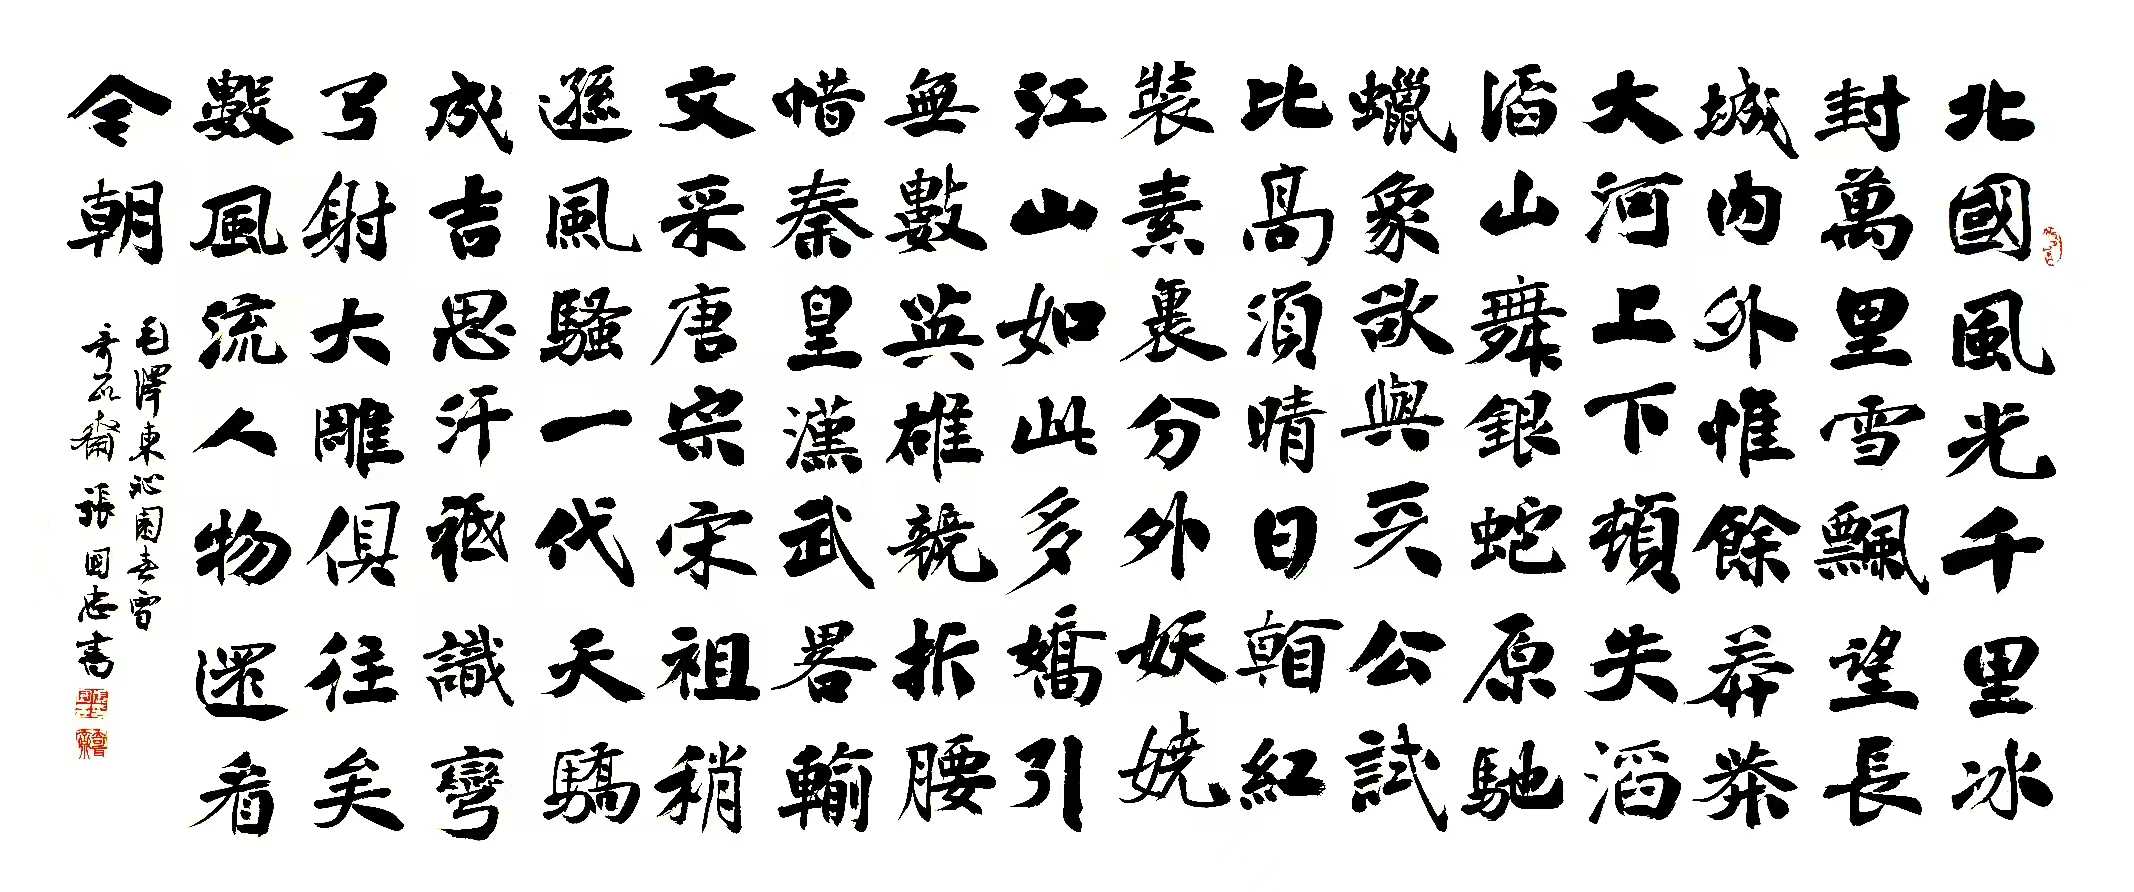 北國風光千里冰
封萬里雪飄望長
城內外惟餘莽莽
大河上下頓失滔
滔山舞銀蛇原馳
蠟象欲與天公試
比高須晴日看紅
裝素裹分外妖嬈
江山如此多嬌引
無數英雄競折腰
惜秦皇漢武畧輸
文采唐宗宋祖稍
遜風騷一代天驕
成吉思汗祗識彎
弓射大雕俱往矣
數風流人物還看
今朝
毛澤東沁園春雪
奇石齋張國志書